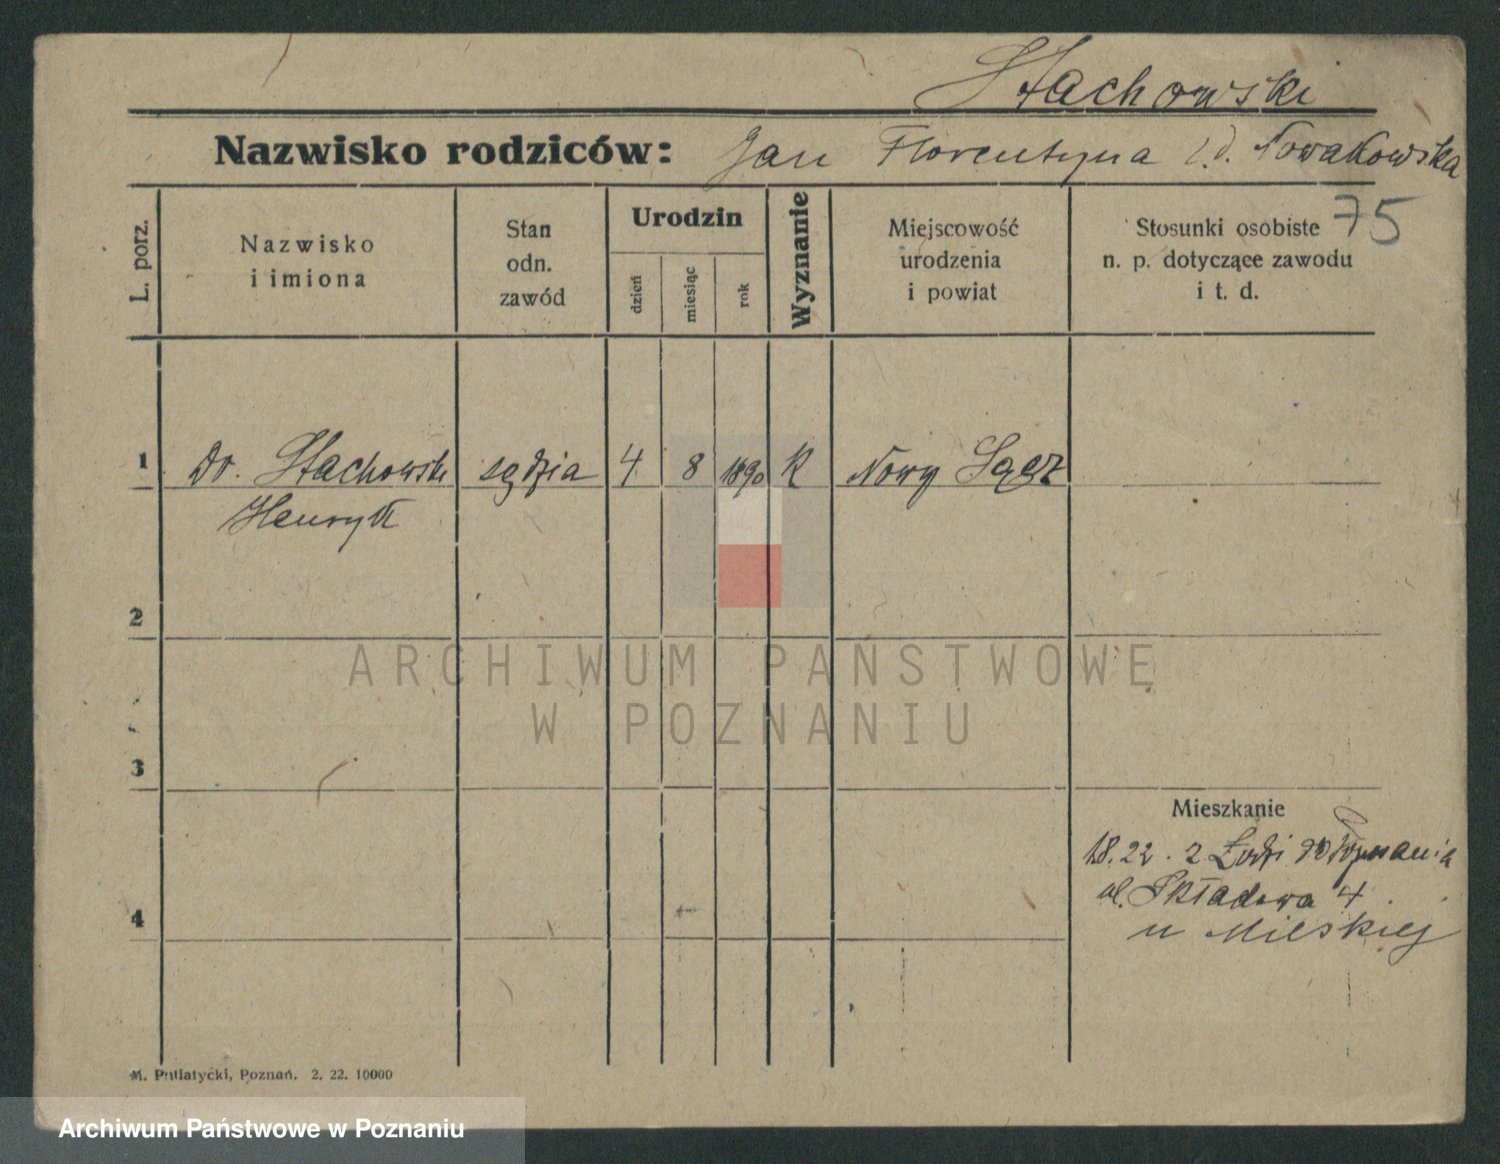 Stachowski
Nazwisko rodziców: Jan Florentyna z.d. Nowakowska
75
L. porz.
Nazwisko
i imiona
Stan
odn.
zawód
Urodzin
dzień
miesiąc
rok
Wyznanie
Miejscowość
urodzenia
i powiat
Stosunki osobiste
n. p. dotyczące zawodu
i t. d.
1 Dr. Stachowski sędzia 4 8 1890 K Nowy Sącz
Henryk
2
3
4
Mieszkanie
1.8.22. z Łodzi do Poznania
ul. Składowa 4
u Milskiej
M. Putiatycki, Poznań. 2. 22. 10000
ARCHIWUM PAŃSTWOWE
W POZNANIU
Archiwum Państwowe w Poznaniu